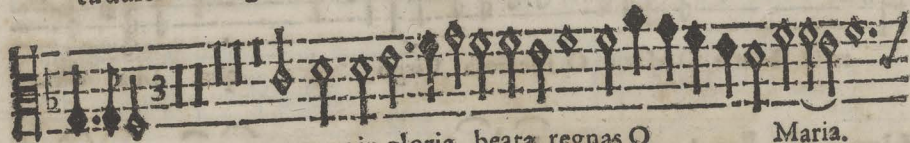 3
in gloria beata regnas O Maria.